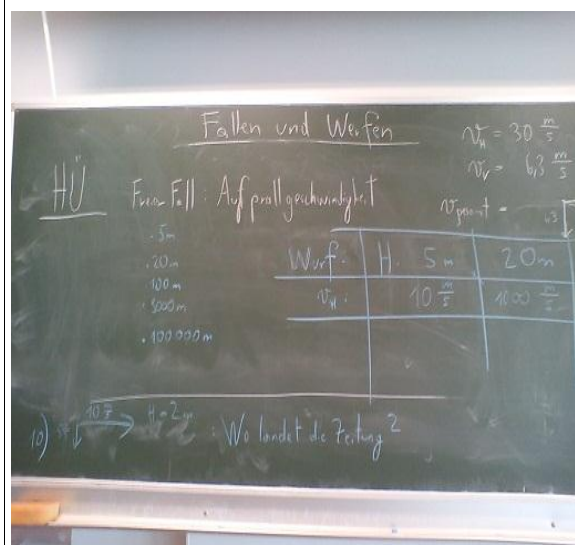 Fallen und Werfen
v_H = 30 m/s
v_V = 6,3 m/s
HÜ
Freier Fall: Aufprallgeschwindigkeit
v_gesamt =
6,3
· 5m
· 20m
· 100m
· 5000m
· 100.000m
Wurf: H. 5m 20m
v_H: 10 m/s 1000 m/s
10) 10 m/s H=2m : Wo landet die Zeitung?